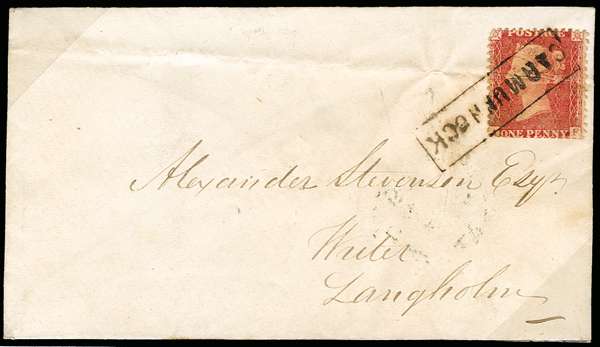 POSTAGE
ONE PENNY
CARMUNNOCK
Alexander Stevenson Esqr.
Writer
Langholm